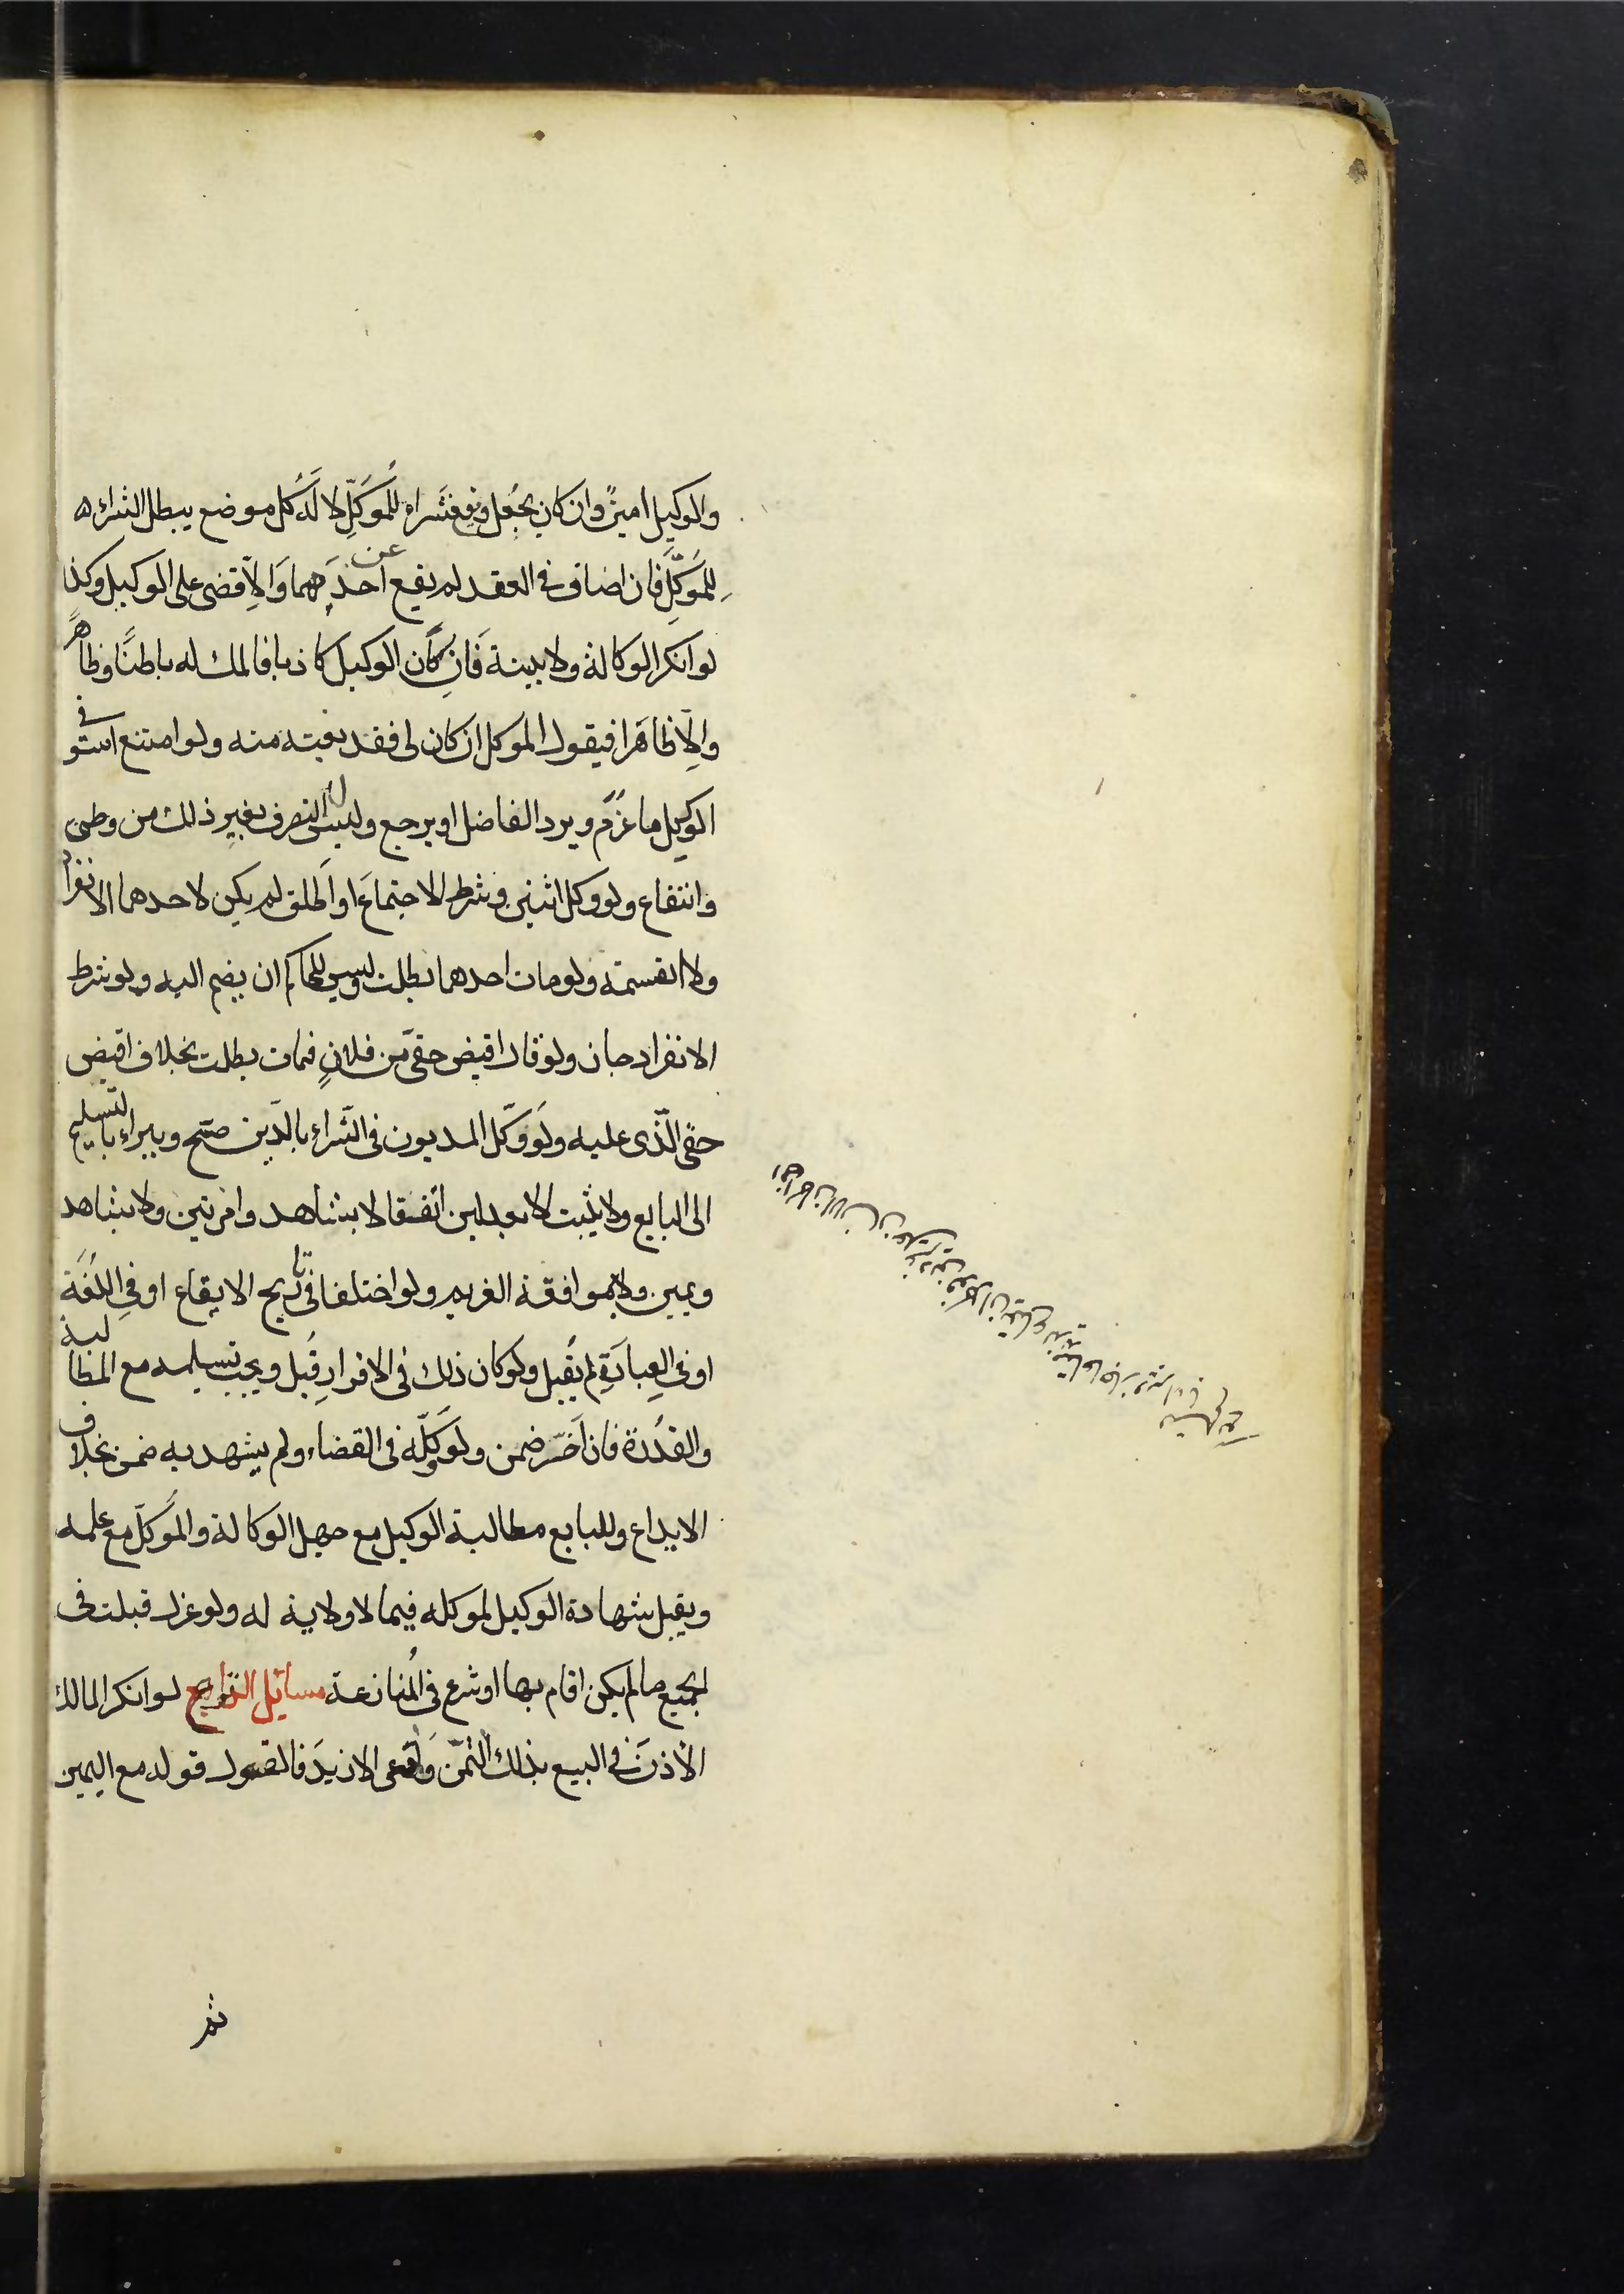 والوكيل امينٌ وان كان بجُعل ويقع شراؤه للمُوَكِّلِ لا لَهُ كل موضع يبطل الشراء
لِلمُوَكِّلِ فان اضاف في العقد لم يقع عن احدهما وَالاّ قضى على الوكيل وكذا
لو انكر الوكالة ولا بينة فَانِ كَان الوكيل كاذبا فالملك له باطنًا وظاهرًا
والاّ ظاهَرا فيقول الموكل ان كان لى فقد بعته منه ولو امتنع استوفى
الوكيل ما غَرُمَ ويرد الفاضل او يرجع وليس له التصرف بغيرِ ذلك من وطىٔ
وانتفاع ولو وكل اثنين وشرط الاجتماعَ او اَطلق لم يكن لاحدهما الانفراد
ولا القسمة ولو مات احدهما بطلت وليس للحاكم ان يضم اليه ولو شرط
الانفراد جاز ولو قال اقبض حقّى من فلانٍ فمات بطلت بخلاف اقبض
حقّى الّذى عليه ولَو وَكّل المديون فى الشّراء بالدّين صحّ ويبراء بالتسليم
الى البايع ولا يثبت الا بعدلين اتّفقا لا بشاهد وامرتين ولا بشاهد
ويمين ولا بموافقة الغريم ولو اختلفا فى تاريخ الايقاع او فِى اللُغَة
او فى العِبارَةِ لم يُقبل ولو كان ذلك فى الاقرارِ قُبل ويجب تسليمه مع المطالبة
والقُدرة فان اَخّر ضمن ولو وَكّلَه فى القضاء ولم يشهد به ضمن بخلاف
الايداع وللبايع مطالبة الوكيل مع جهل الوكالة والمُوَكّل مع علمه
ويقبل شهادة الوكيل لموكله فيما لا ولاية له ولو عزل قبلت فى
الجميع ما لم يكن اقام بها او شرع فى المُنازعة مسائل النزاع لو انكر المالك
الاذنَ فى البيع بذلك الثمن وَادّعى الازيدَ فالقول قوله مع اليمين
ثم